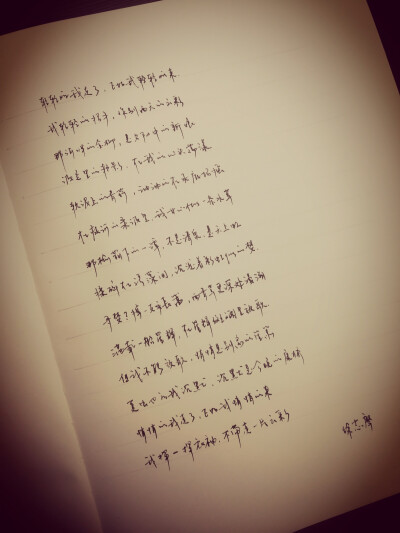 轻轻的我走了，正如我轻轻的来
我轻轻的招手，作别西天的云彩
那河畔的金柳，是夕阳中的新娘
波光里的艳影，在我的心头荡漾
软泥上的青荇，油油的在水底招摇
在康河的柔波里，我甘心做一条水草
那榆荫下的一潭，不是清泉，是天上虹
揉碎在浮藻间，沉淀着彩虹似的梦
寻梦？撑一支长篙，向青草更深处漫溯
满载一船星辉，在星辉斑斓里放歌
但我不能放歌，悄悄是别离的笙箫
夏虫也为我沉默，沉默是今晚的康桥
悄悄的我走了，正如我悄悄的来
我挥一挥衣袖，不带走一片云彩
徐志摩